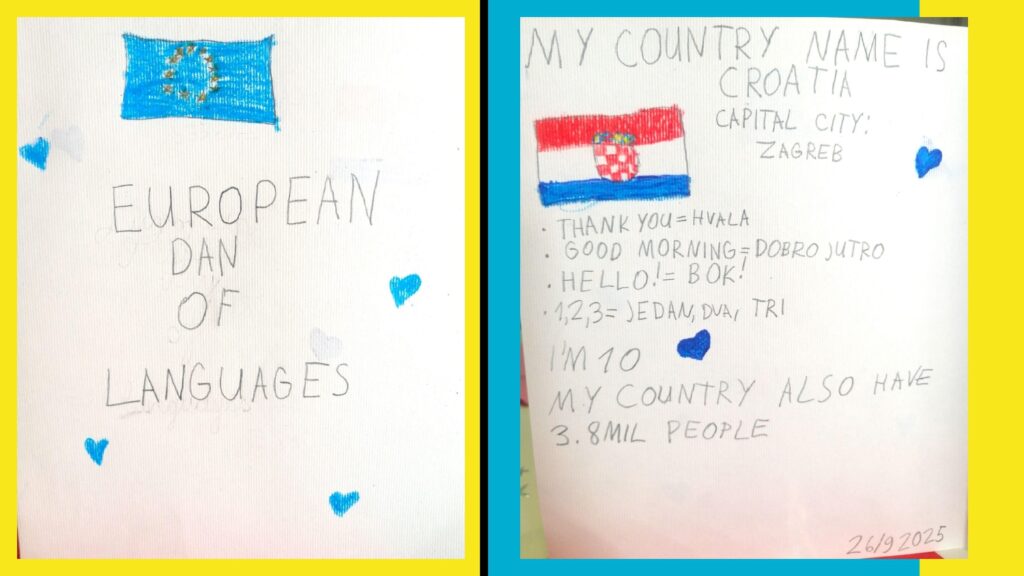 EUROPEAN
DAN
OF
LANGUAGES
MY COUNTRY NAME IS
CROATIA
CAPITAL CITY:
ZAGREB
• THANK YOU = HVALA
• GOOD MORNING = DOBRO JUTRO
• HELLO! = BOK!
• 1,2,3 = JEDAN, DVA, TRI
I'M 10
MY COUNTRY ALSO HAVE
3.8MIL PEOPLE
26/9 2025